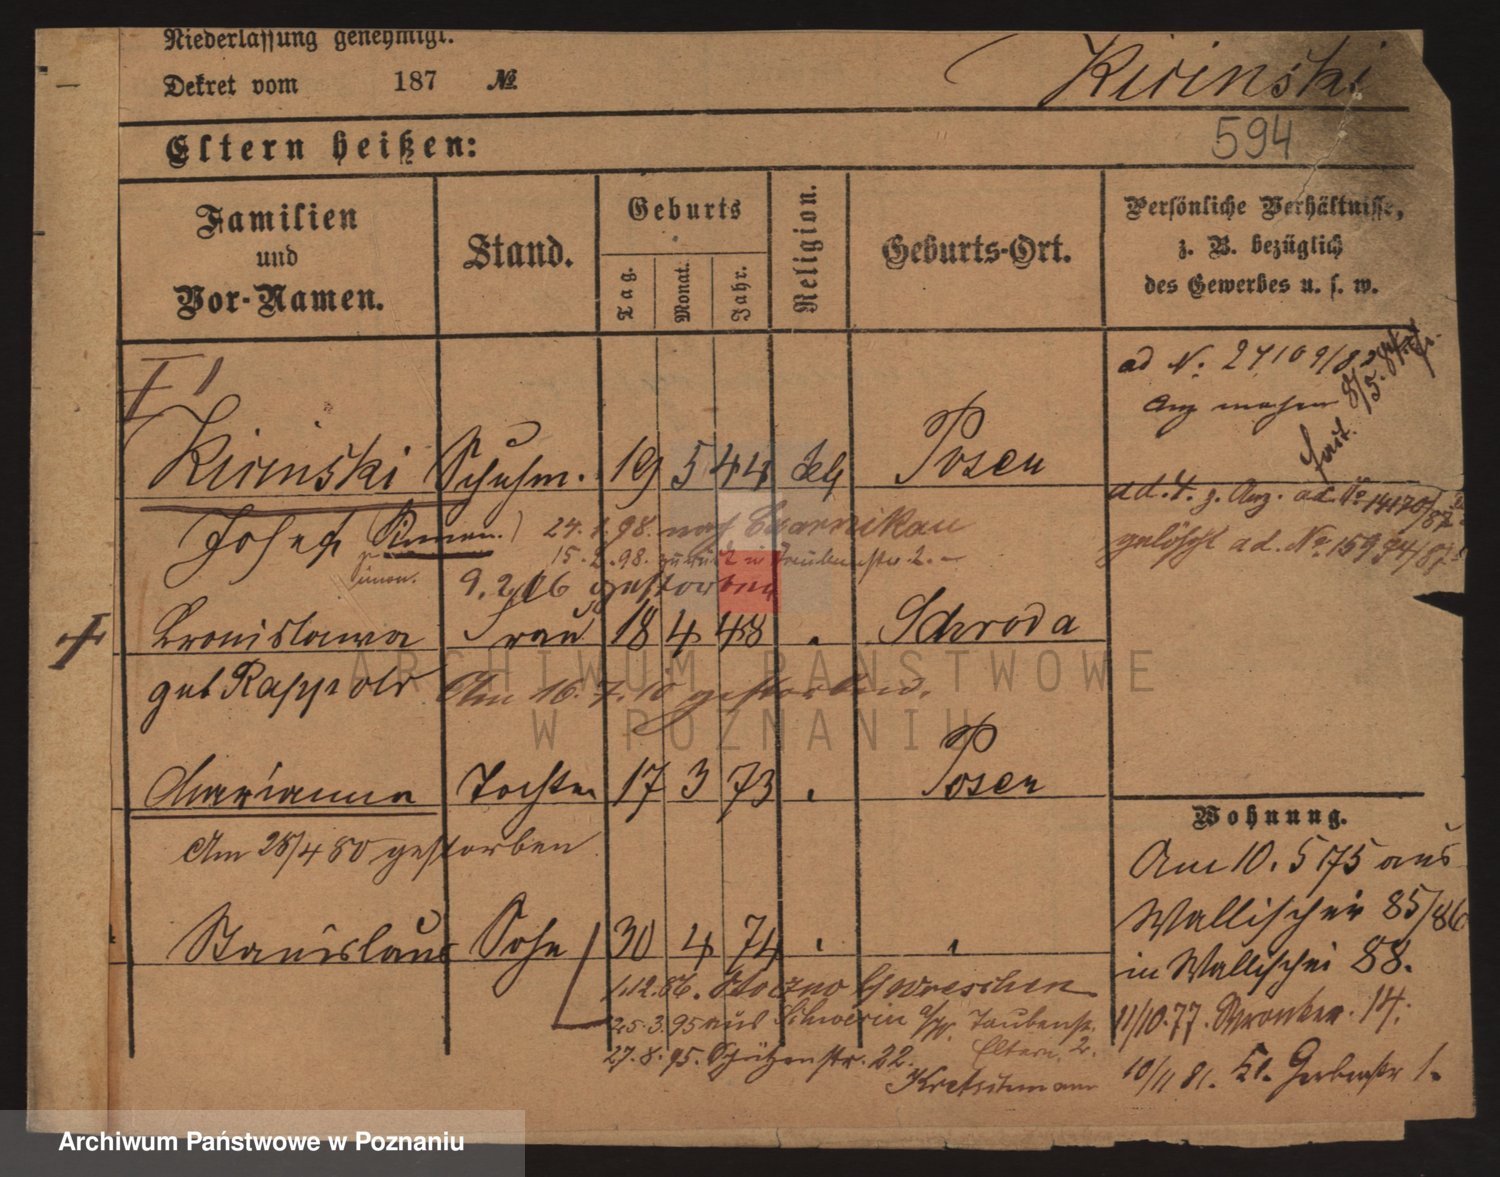 Niederlassung genehmigt.
Dekret vom 187 №
Kirinski
594
Eltern heißen:
Familien und Vor-Namen.
Stand.
Geburts
Tag.
Monat.
Jahr.
Religion.
Geburts-Ort.
Persönliche Verhältnisse, z. B. bezüglich des Gewerbes u. s. w.
Kirinski Schuhm. 19 5 44 Posen
Josef
Simon.
24.1.98. nach Czarnikau
15.2.98. zurück in Taubenstr 2.
gestorben
Bronislawa Frau 18 4 48 Schroda
geb Rappold
Am 16.7.10 gestorben.
Marianna Tochter 17 3 73 Posen
Am 28/4 80 gestorben
Stanislaus Sohn 30 4 74
1.12.86. Wreschen
25.3.95 aus Schwerin a/W. Taubenstr.
Eltern. 2.
27.8.95. Schützenstr. 22.
Kretschmann
ad N.
ad. № 14170/87
gelöscht ad. №
Wohnung.
Am 10. 5 75 aus
Wallischei 85/86
in Wallischei 88.
11/10.77. Wronker. 14.
10/11 81. Kl. Gerberstr 1.
ARCHIWUM PAŃSTWOWE
W POZNANIU
Archiwum Państwowe w Poznaniu